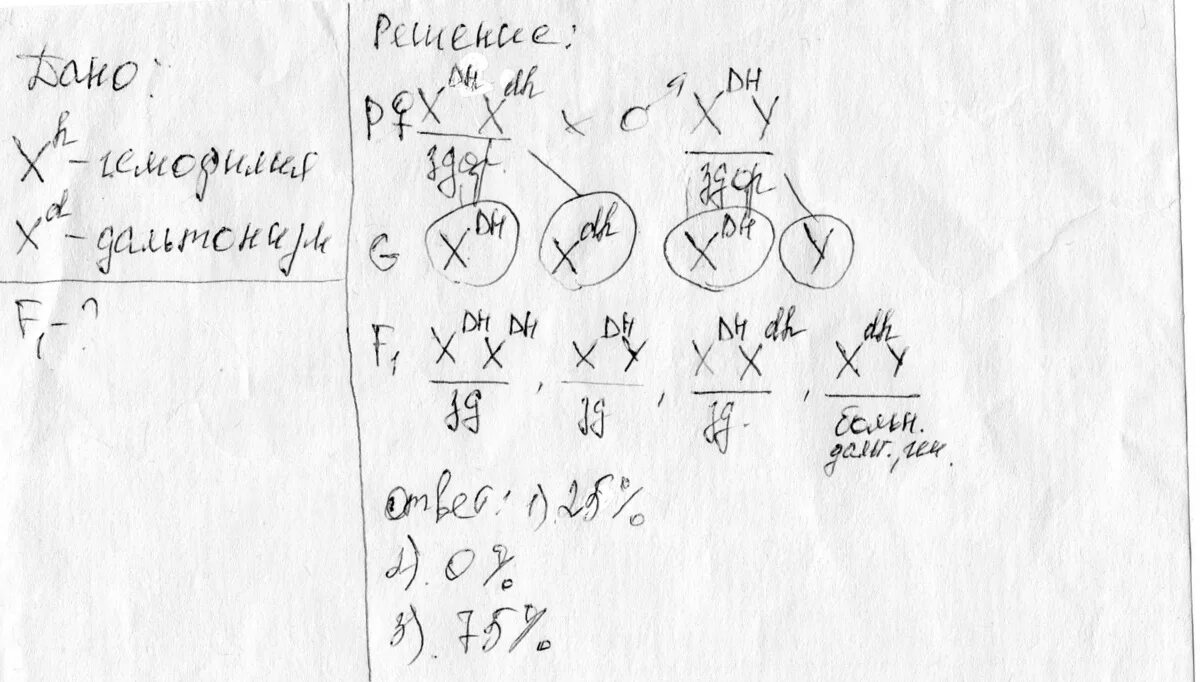 Дано:
X^h - гемофилия
X^d - дальтонизм
F₁ - ?
Решение:
P ♀ X^DH X^dh × ♂ X^DH Y
здор. здор
G X^DH X^dh X^DH Y
F₁ X^DH X^DH , X^DH Y , X^DH X^dh , X^dh Y
зд зд зд. больн.
дальт., гем.
Ответ: 1). 25%
2). 0%
3). 75%